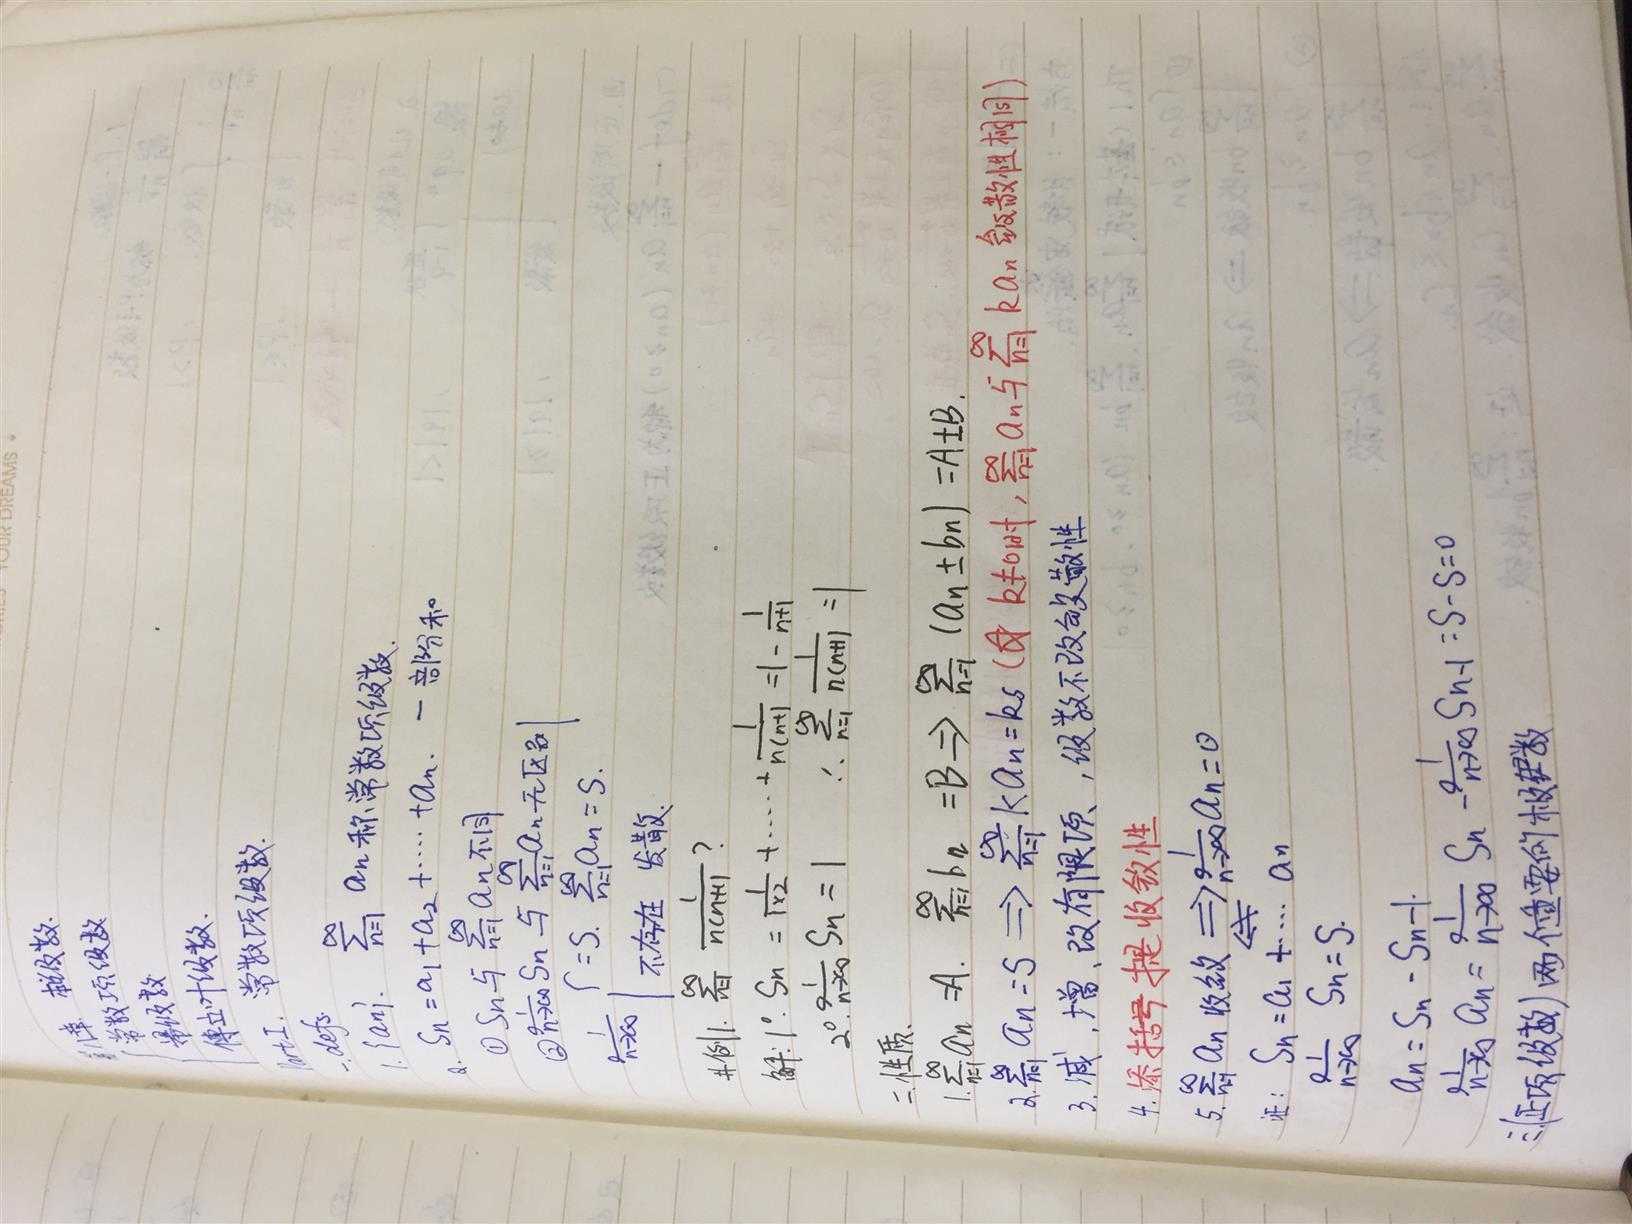 YOUR DREAMS
级数.
常数项级数
幂级数
傅立叶级数.
常数项级数.
Part I.
一. defs
1. {an}. ∑_{n=1}^{∞} an 称常数项级数.
2. Sn = a1 + a2 + …… + an. — 部分和
① Sn 与 ∑_{n=1}^{∞} an 不同
② lim_{n→∞} Sn 与 ∑_{n=1}^{∞} an 无区别
lim_{n→∞} { = S. ∑_{n=1}^{∞} an = S.
不存在 发散.
#例1. ∑_{n=1}^{∞} 1/n(n+1) ?
解: 1°. Sn = 1/1×2 + …… + 1/n(n+1) = 1 - 1/n+1
2°. lim_{n→∞} Sn = 1 ∴ ∑_{n=1}^{∞} 1/n(n+1) = 1
二. 性质.
1. ∑_{n=1}^{∞} an = A. ∑_{n=1}^{∞} bn = B ⇒ ∑_{n=1}^{∞} (an ± bn) = A±B.
2. ∑_{n=1}^{∞} an = S ⇒ ∑_{n=1}^{∞} kan = ks (当 k≠0时, ∑_{n=1}^{∞} an 与 ∑_{n=1}^{∞} kan 敛散性相同)
3. 减, 增, 改有限项, 级数不改敛散性
4. 添括号提收敛性
5. ∑_{n=1}^{∞} an 收敛 ⇒ lim_{n→∞} an = 0
⇍
证: Sn = a1 + …… an
lim_{n→∞} Sn = S.
an = Sn - Sn-1.
lim_{n→∞} an = lim_{n→∞} Sn - lim_{n→∞} Sn-1 = S - S = 0
三. (正项级数) 两个重要的级数